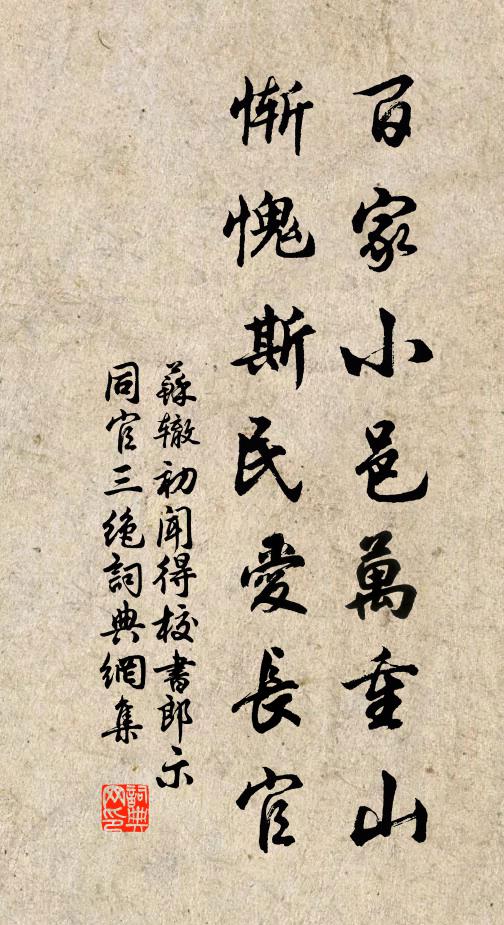 百家小邑萬重山
慚愧斯民愛長官
蘇轍初聞得校書郎示
同官三絶詞典網集
詞典
网印